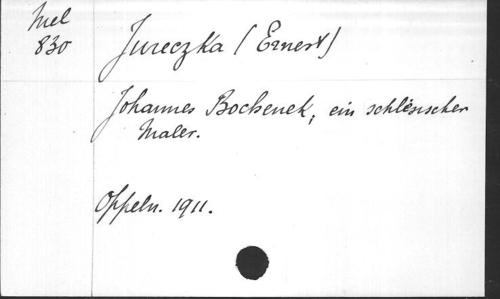 Mel
830
Jureczka (Ernest)
Johannes Bochenek, ein schlesischer
Maler.
Oppeln. 1911.